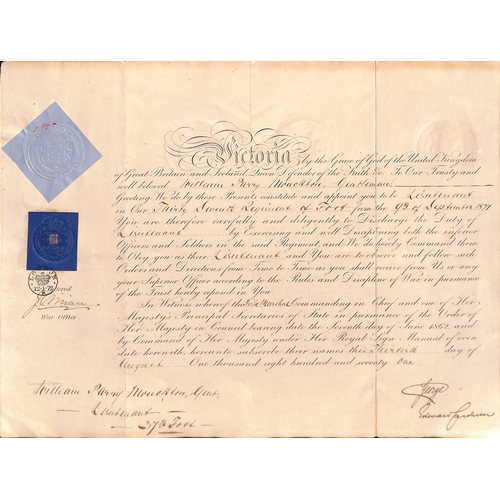 Victoria by the Grace of God of the United Kingdom
of Great Britain and Ireland, Queen Defender of the Faith &c. To Our Trusty and
well beloved William Parry Monckton, Gentleman,
Greeting We do by these Presents constitute and appoint you to be Lieutenant
in Our Thirty Seventh Regiment of Foot from the 9th of September 1871
You are therefore carefully and diligently to Discharge the Duty of
Lieutenant by Exercising and well Disciplining both the inferior
Officers and Soldiers in the said Regiment, and We do hereby Command them
to Obey you as their Lieutenant and You are to observe and follow such
Orders and Directions from Time to Time as you shall receive from Us or any
your Superior Officer according to the Rules and Discipline of War in pursuance
of the Trust hereby reposed in You.
In Witness whereof the Field Marshal Commanding in Chief and one of Her
Majesty's Principal Secretaries of State in pursuance of the Order of
Her Majesty in Council bearing date the Seventh day of June 1862, and
by Command of Her Majesty under Her Royal Sign Manual of even
date herewith, hereunto subscribe their names this day of
August One thousand eight hundred and seventy One
War Office.
William Parry Monckton, Gent,
Lieutenant
37th Foot
George
Edward Cardwell